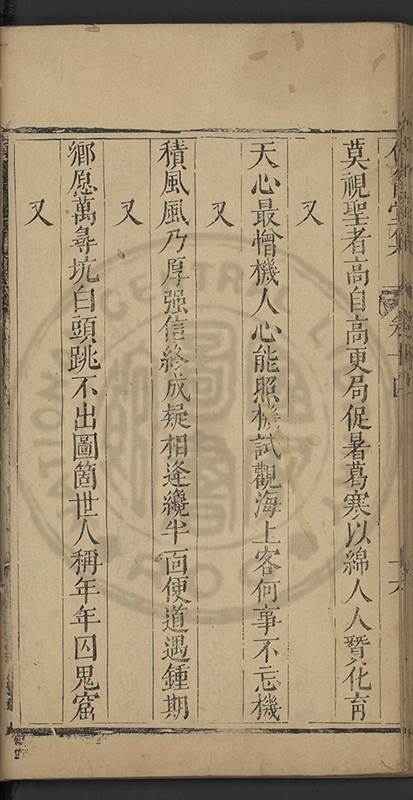 莫視聖者高自高更局促暑葛寒以綿人人暨化育
又
天心最憎機人心能照機試觀海上客何事不忘機
又
積風風乃厚强信終成疑相逢纔半面便道遇鍾期
又
鄉愿萬尋坑白頭跳不出圖箇世人稱年年囚鬼窟
又